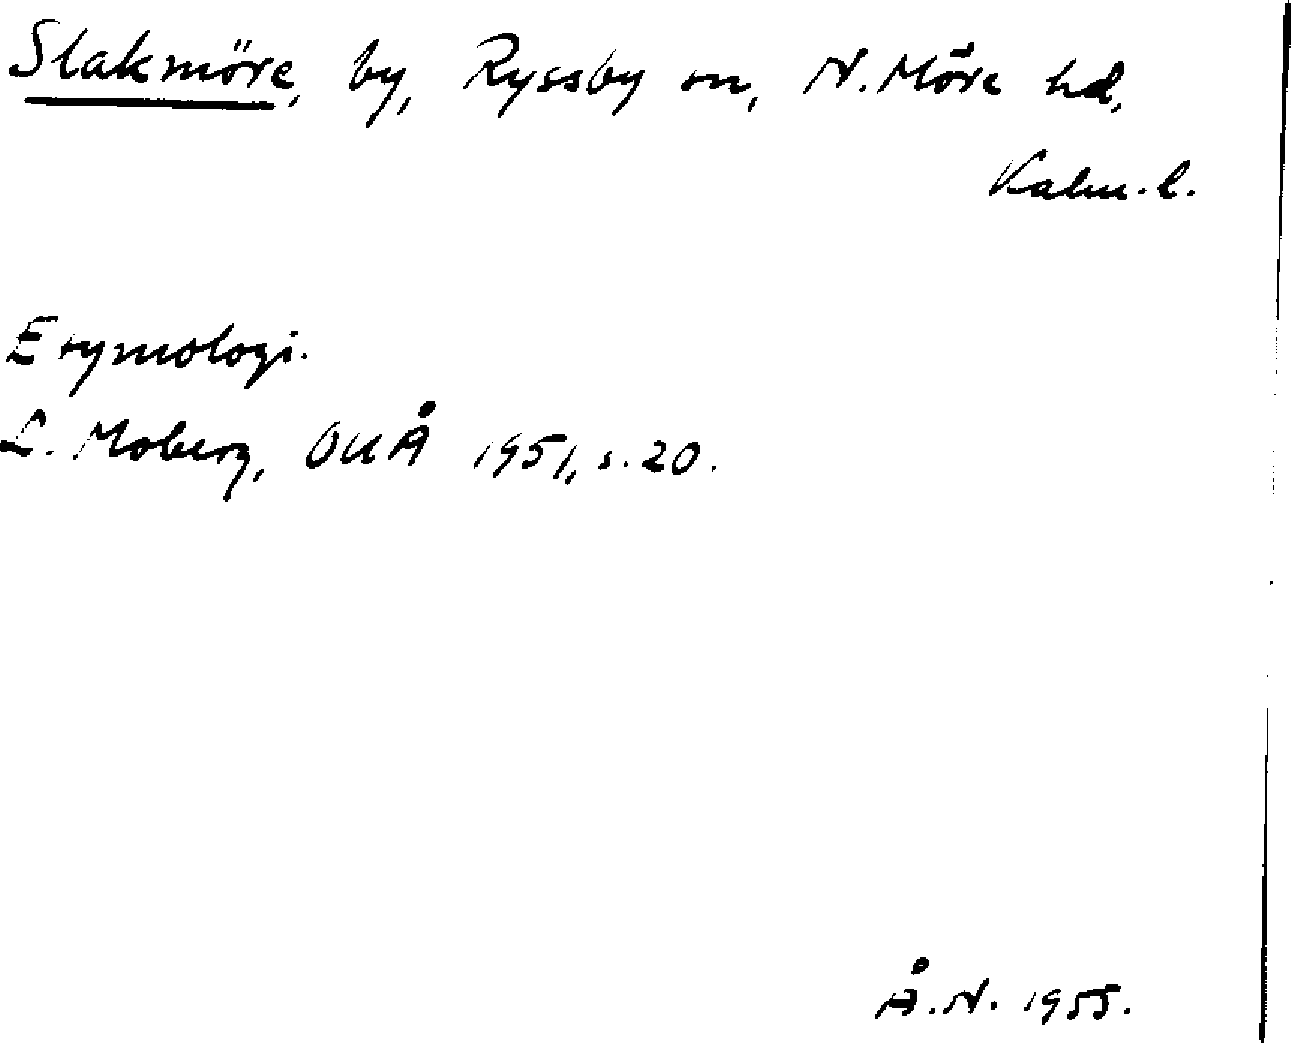 Slakmöre, by, Ryssby sn, N. Möre hd,
Kalm. l.
Etymologi.
L. Moberg, OUÅ 1951, s. 20.
Å. N. 1955.